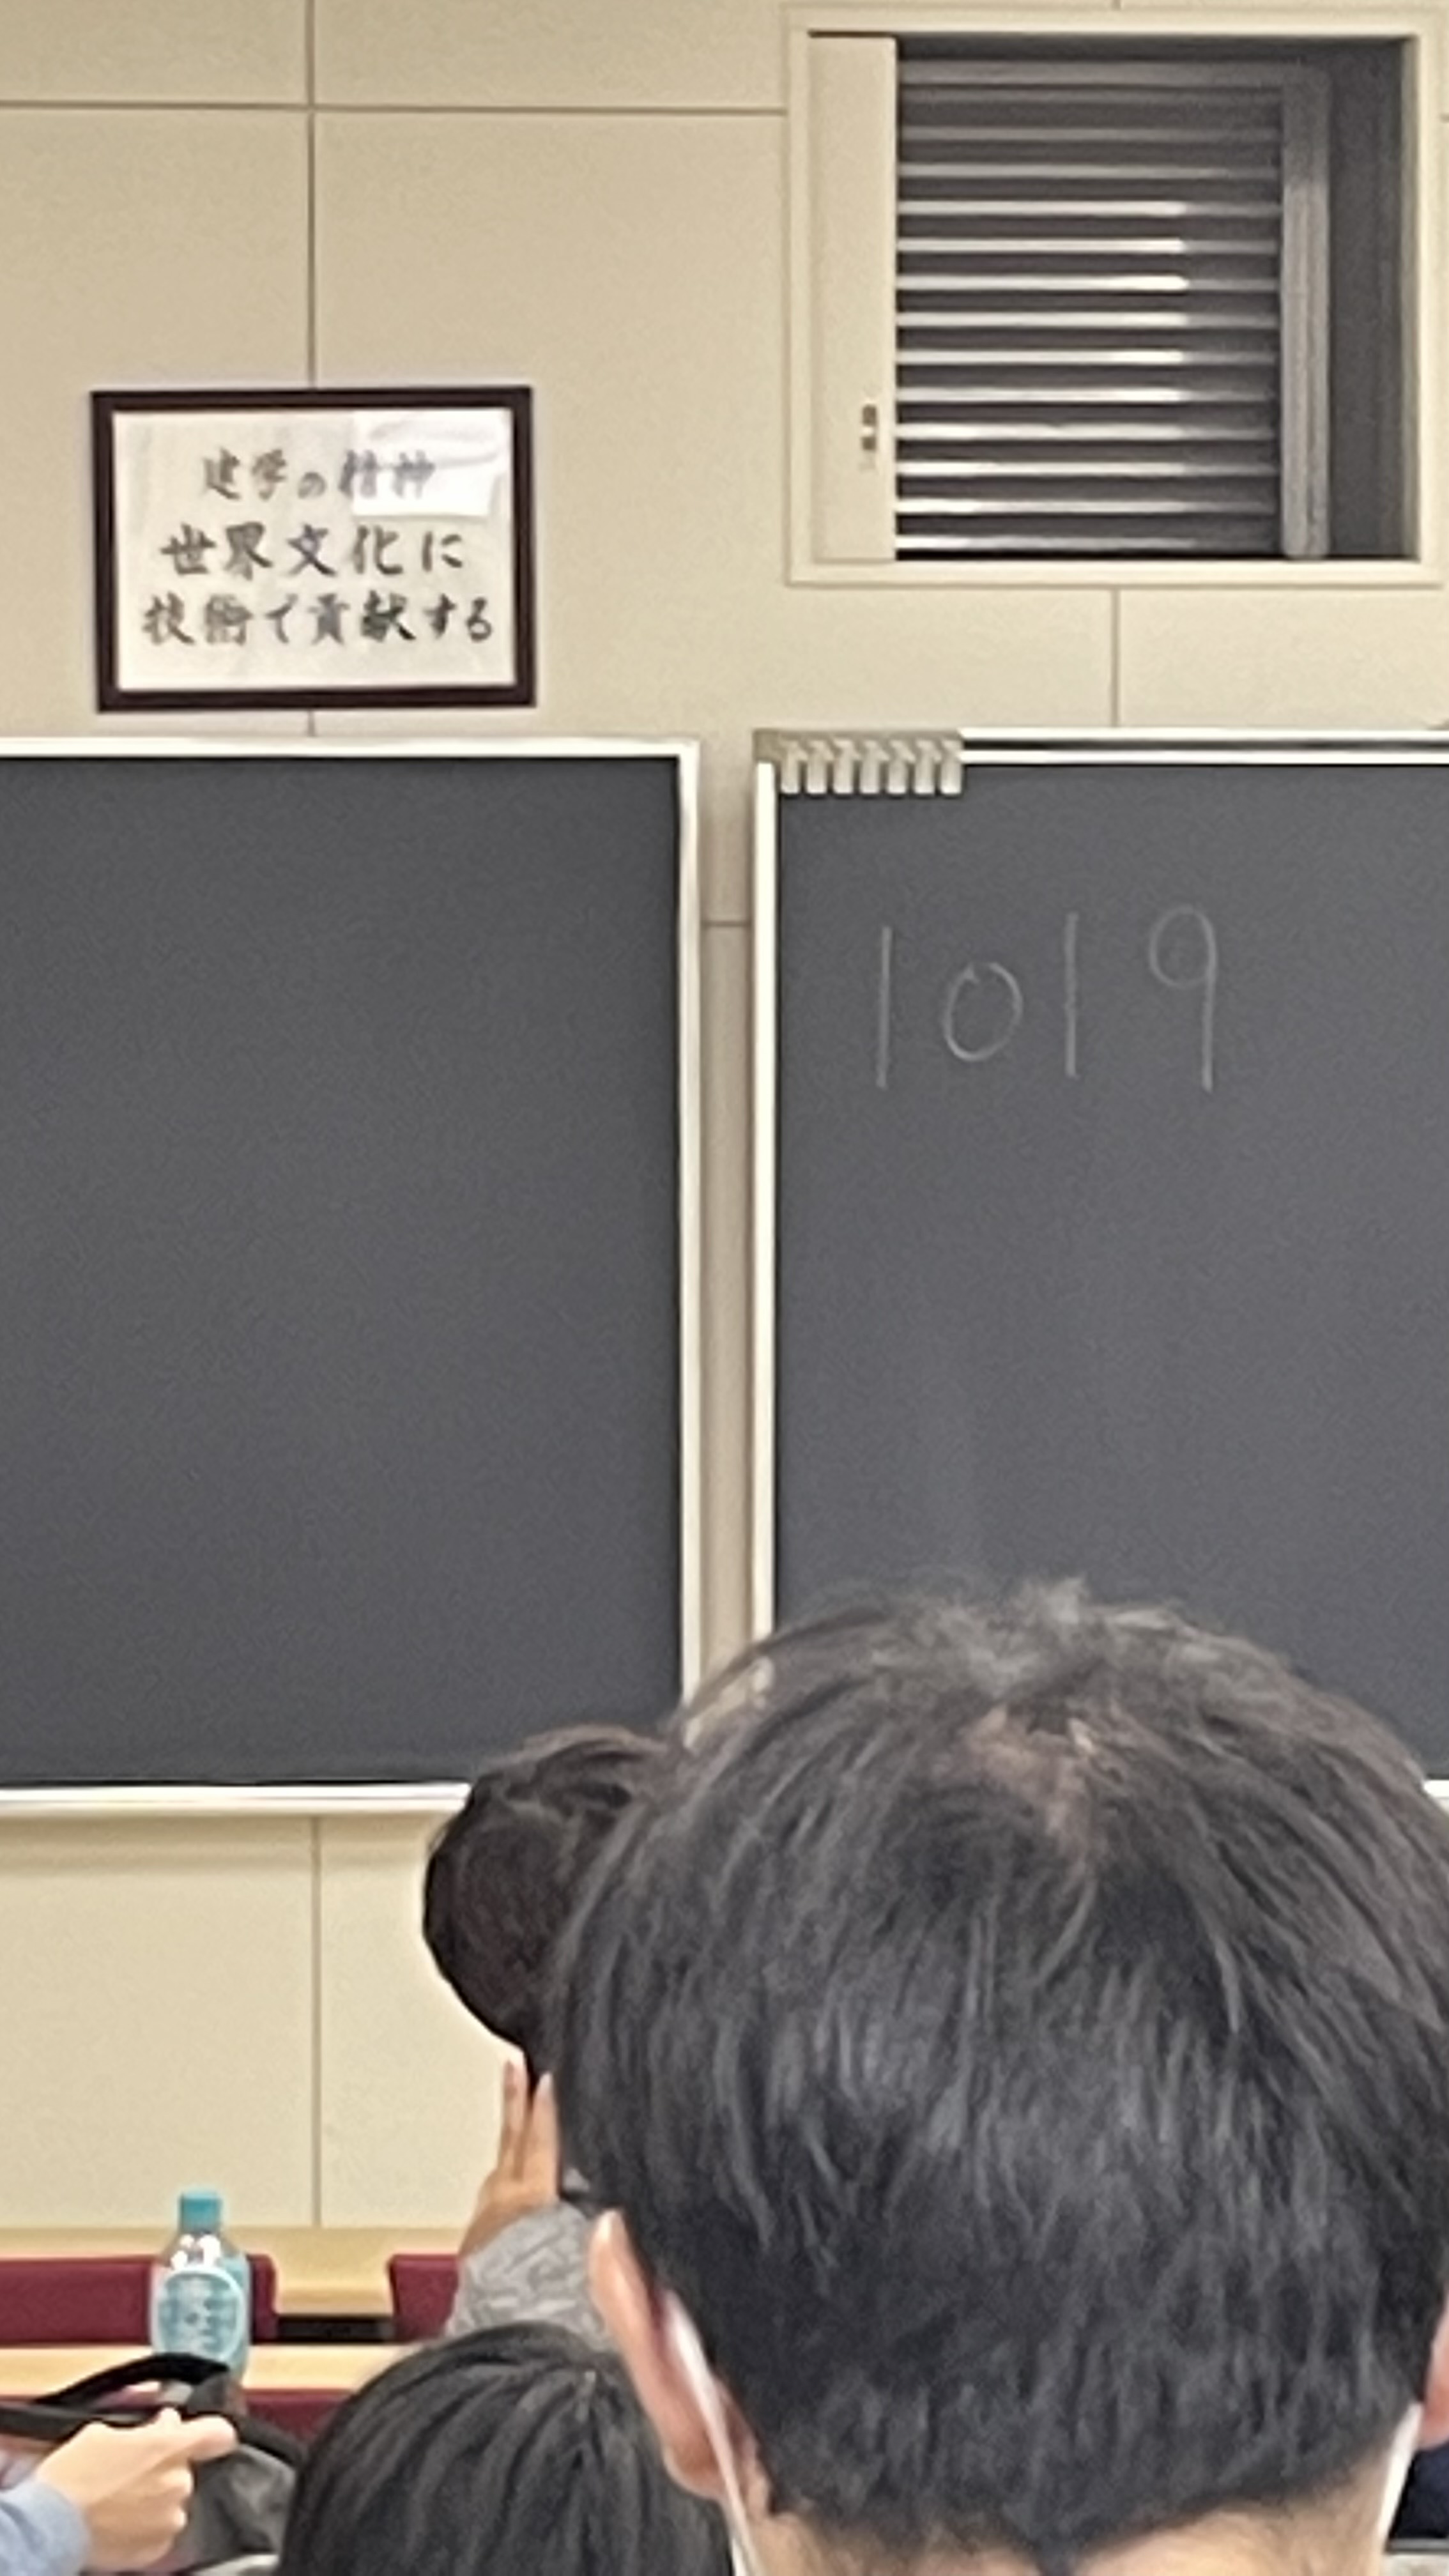 建学の精神
世界文化に
技術で貢献する
1019